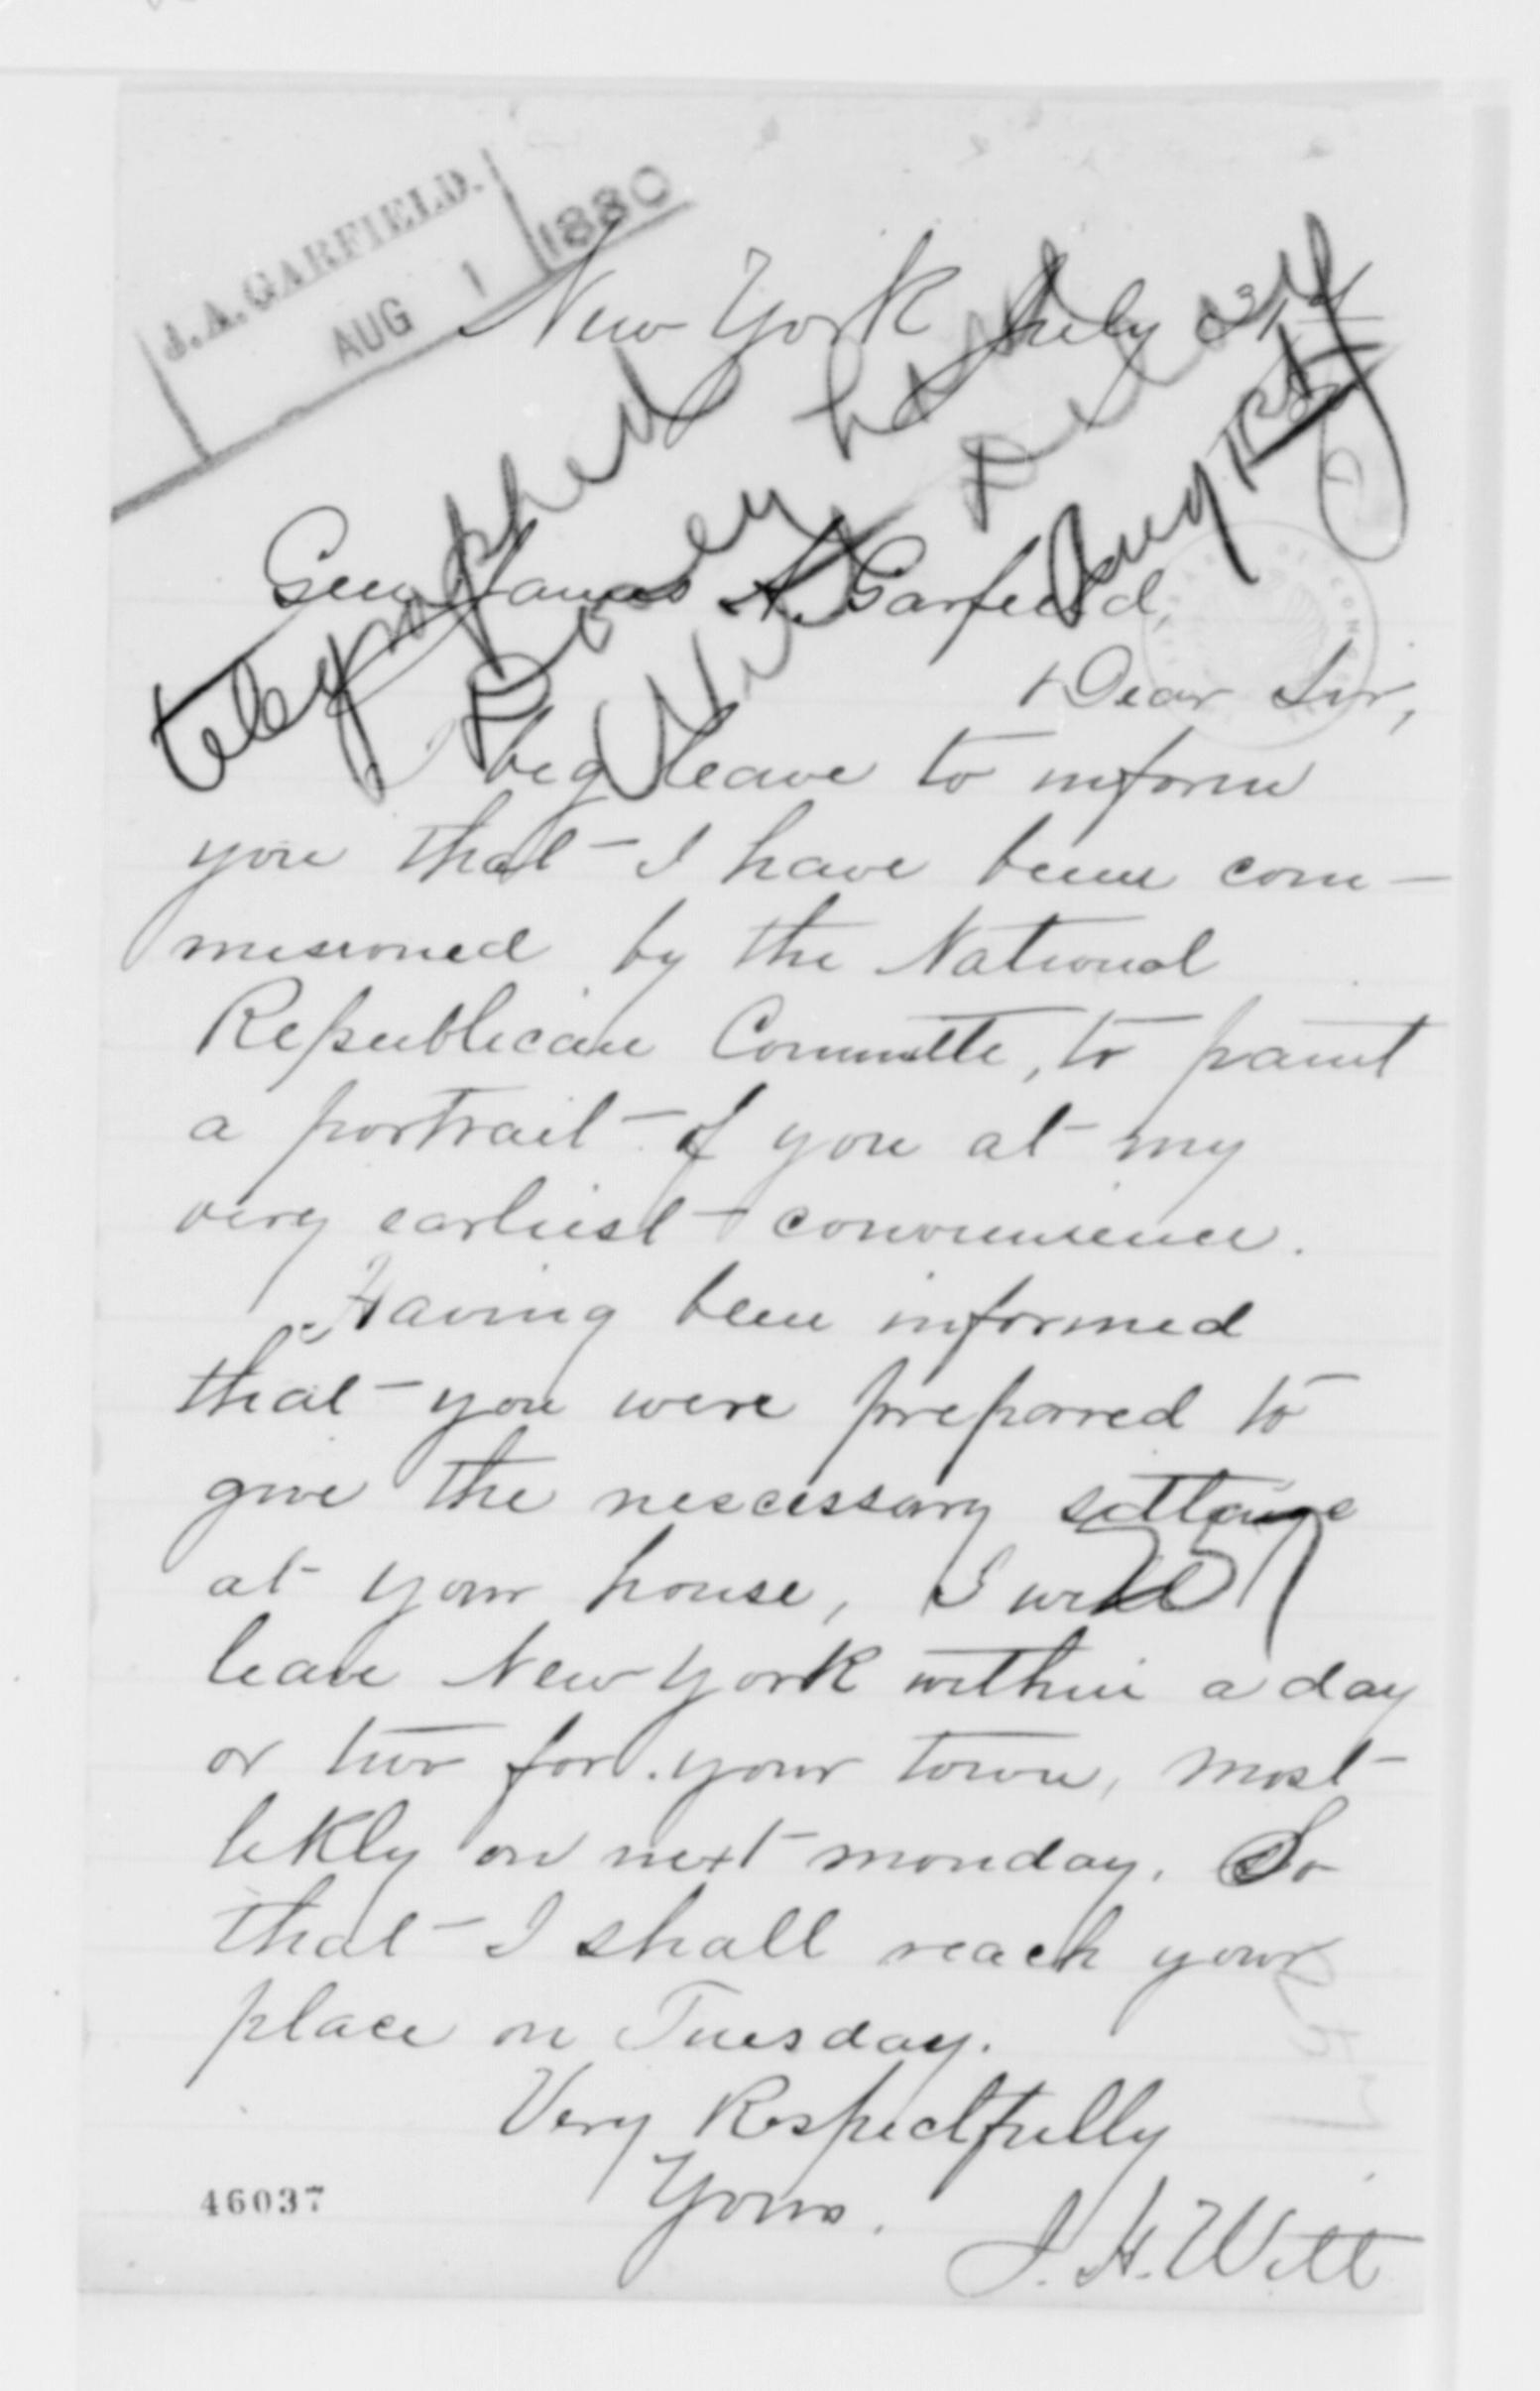 J. A. GARFIELD.
AUG 1 1880
New York July 31st
telegraphed
Dorsey have
Witt delay
Aug 1st
Gen James A. Garfield,
Dear Sir,
I beg leave to inform
you that I have been com-
missioned by the National
Republican Committe, to paint
a portrait of you at my
very earliest convenience.
Having been informed
that you were preparred to
give the nescessary sittings
at your house, I will
leave New York within a day
or two for your town, most
likly on next monday. So
that I shall reach your
place on Tuesday.
Very Respectfully
Yours.
J. H. Witt
46037